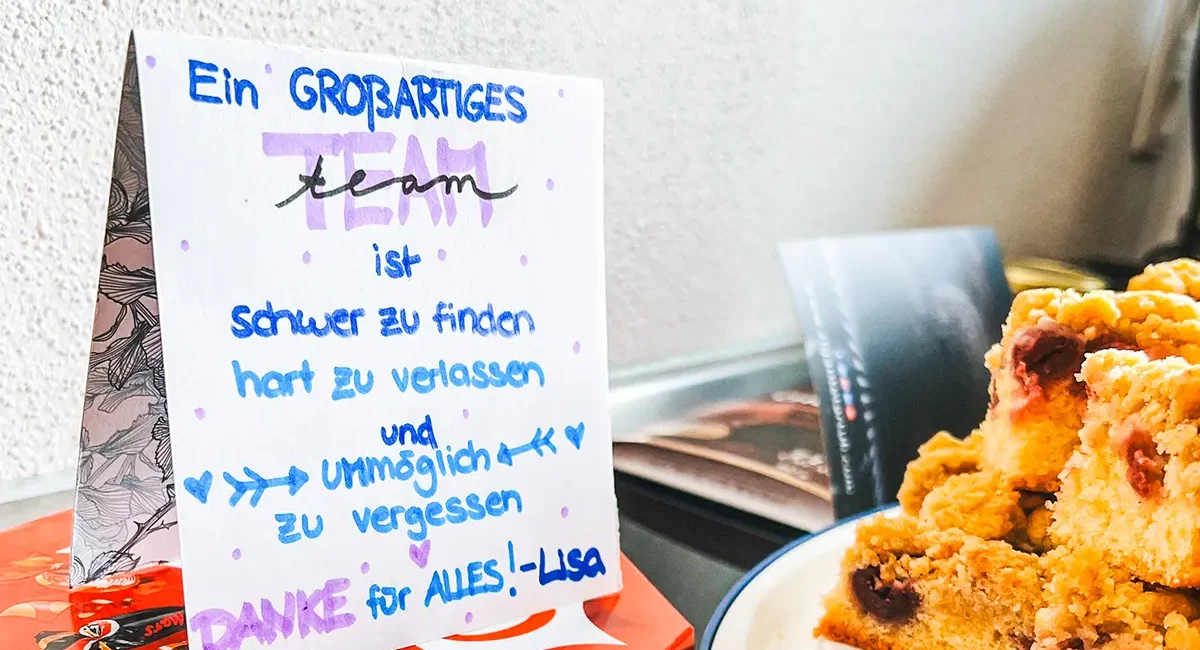 Ein GROßARTIGES
TEAM
team
ist
schwer zu finden
hart zu verlassen
und
unmöglich
zu vergessen
DANKE für ALLES! -Lisa
Mars